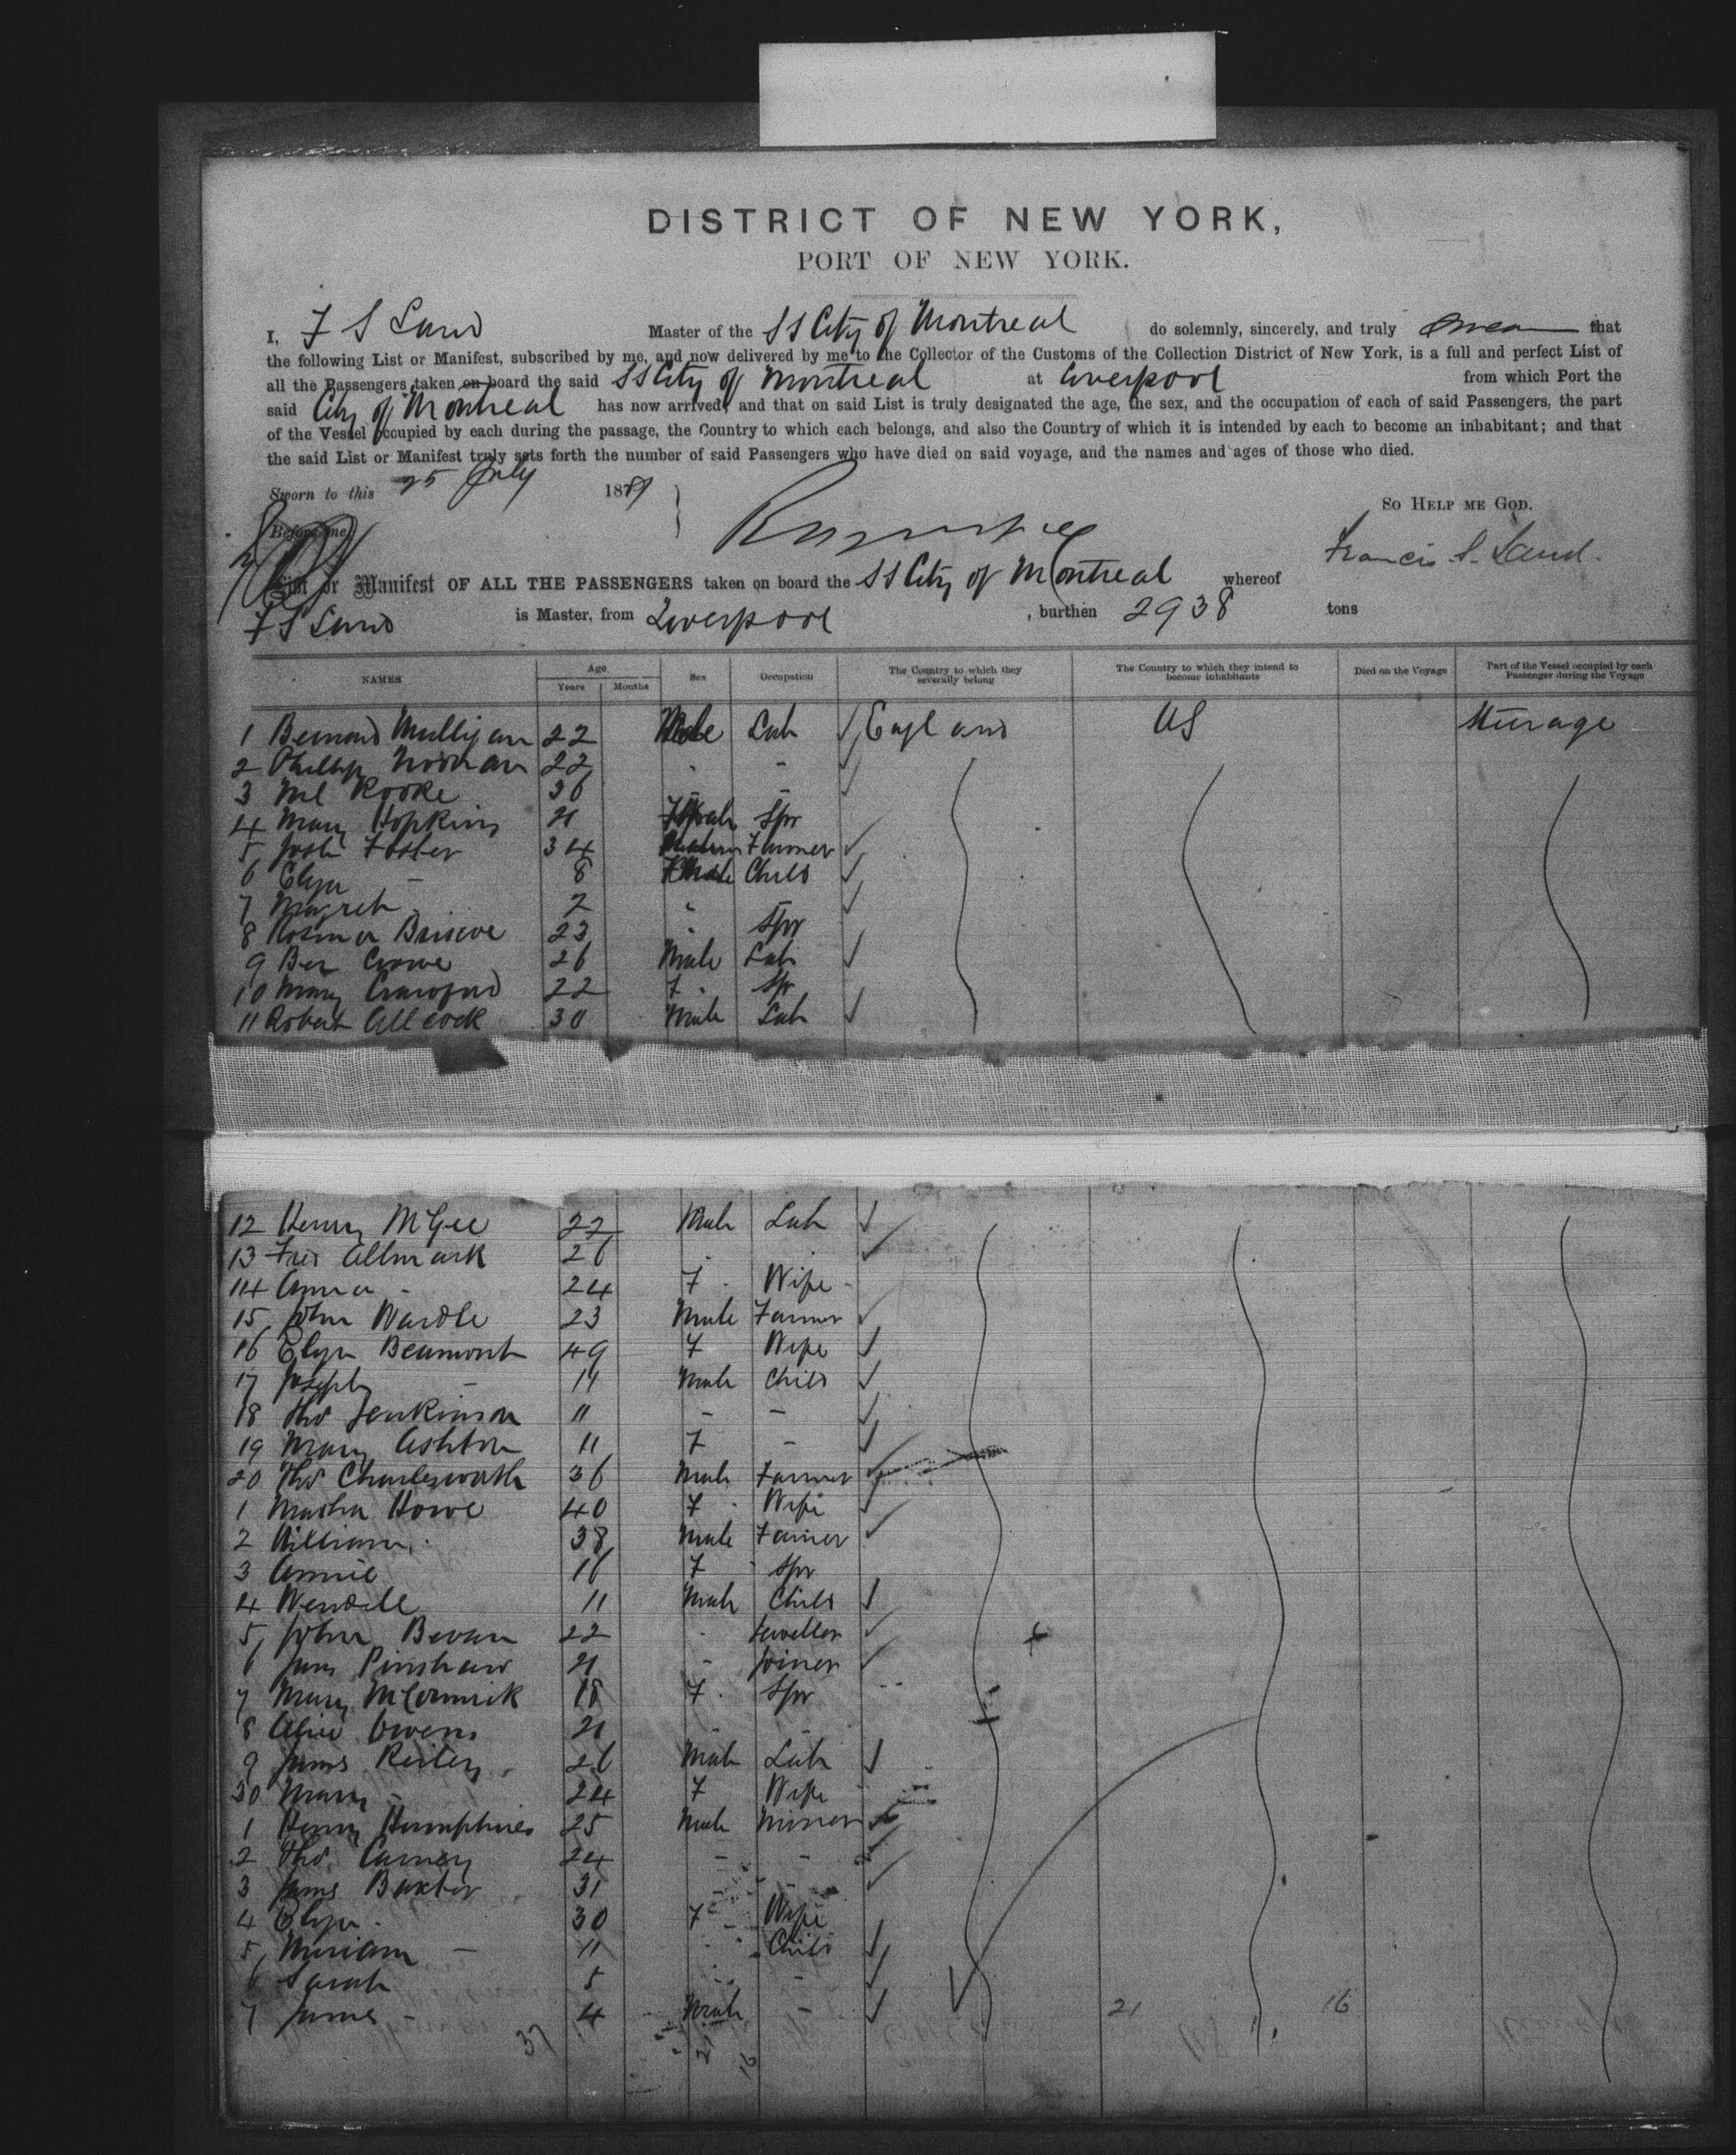 DISTRICT OF NEW YORK,
PORT OF NEW YORK.
I, F S Land Master of the SS City of Montreal do solemnly, sincerely, and truly swear that
the following List or Manifest, subscribed by me, and now delivered by me to the Collector of the Customs of the Collection District of New York, is a full and perfect List of
all the Passengers taken on board the said SS City of Montreal at Liverpool from which Port the
said City of Montreal has now arrived, and that on said List is truly designated the age, the sex, and the occupation of each of said Passengers, the part
of the Vessel occupied by each during the passage, the Country to which each belongs, and also the Country of which it is intended by each to become an inhabitant; and that
the said List or Manifest truly sets forth the number of said Passengers who have died on said voyage, and the names and ages of those who died.
Sworn to this 25 July 18
So Help me God.
Before me
Francis S. Land.
List or Manifest OF ALL THE PASSENGERS taken on board the SS City of Montreal whereof
F S Land is Master, from Liverpool, burthen 2938 tons
NAMES Age Years Months Sex Occupation The Country to which they severally belong The Country to which they intend to become inhabitants Died on the Voyage Part of the Vessel occupied by each Passenger during the Voyage
1 Bernard Mulligan 22 Male Lab England US Steerage
2 Phillip 22 " -
3 Ml Rooke 36 - -
4 Mary Hopkins 21 Spr
5 Josh Foster 34 Farmer
6 Eliza - 8 Child
7 Margret 2 " -
8 Briscoe 23 " Spr
9 Ben Crowe 26 Male Lab
10 Mary Crawford 22 F Spr
11 Robert Allcock 30 Male Lab
12 Henry McGee 22 Male Lab
13 Fred Allmark 26
14 Anna - 24 F Wife
15 John Wardle 23 Male Farmer
16 Eliza Beaumont 49 F Wife
17 Joseph - 11 Male Child
18 Thos Jenkinson 11 - -
19 Mary Ashton 11 F -
20 Thos Charlesworth 36 Male Farmer
1 Martha Howe 40 F Wife
2 William 38 Male Farmer
3 Annie 16 F Spr
4 Wendell 11 Male Child
5 John Bevan 22 " Jeweller
6 Jams Pinshaw 21 - Joiner
7 Mary McCormick 18 F Spr
8 Alice Owens 21 - -
9 James Reiley 26 Male Lab
30 Mary - 24 F Wife
1 Henry Humphries 25 Male Miner
2 Thos Carney 24 - -
3 James Baxter 31 - -
4 Eliza 30 F Wife
5 Miriam - 11 " Child
6 Sarah 5 " -
7 James - 4 Male -
21 16
37 21 16